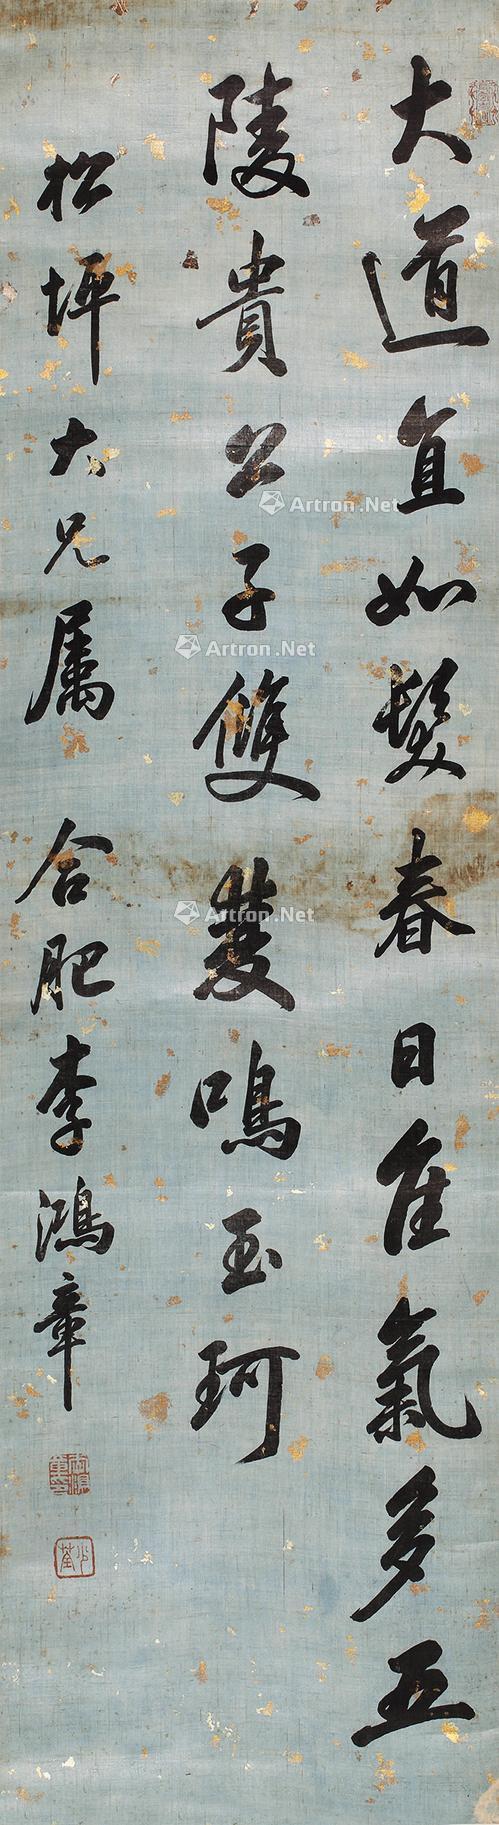 大道直如髮春日佳氣多五
陵貴公子雙雙鳴玉珂
松坪大兄属 合肥李鴻章
少荃
Artron.Net
Artron.Net
Artron.Net